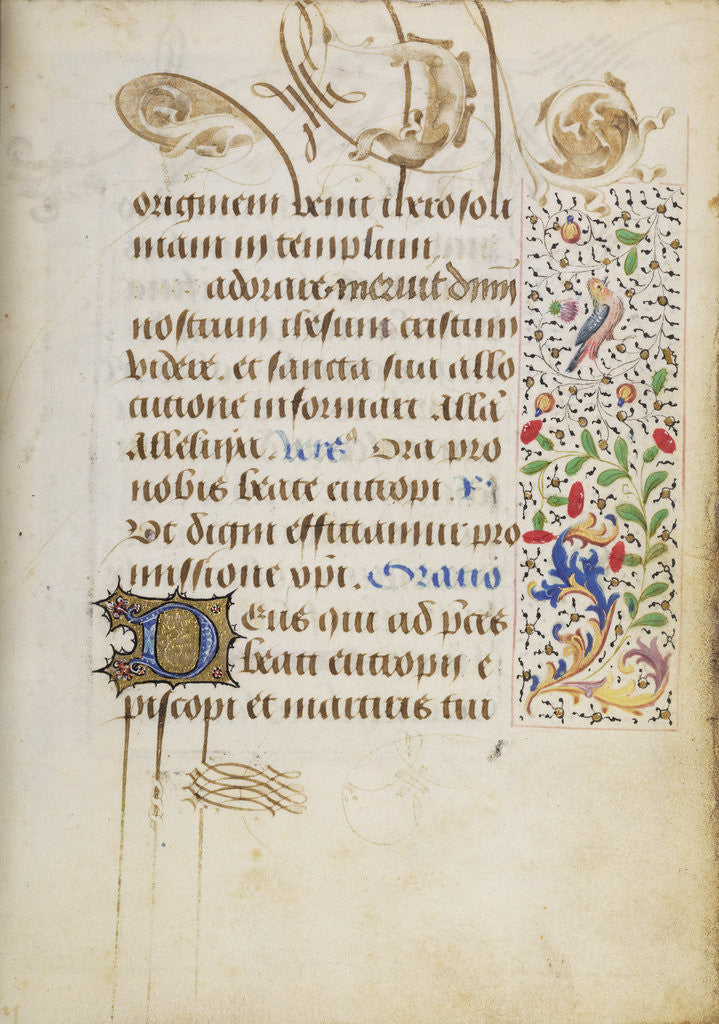 originem venit iherosoli
mam in templum
adorare meruit dnm̄
nostrum ihesum cristum
videre. et sancta sua allo
cutione informari All̄a
Alleluya. Vers9 Ora pro
nobis beate eutropi. R
Vt digni efficiamur pro
missione xp̄i. Oratio
Deus qui ad p̄ces
beati eutropij e
piscopi et martiris tui